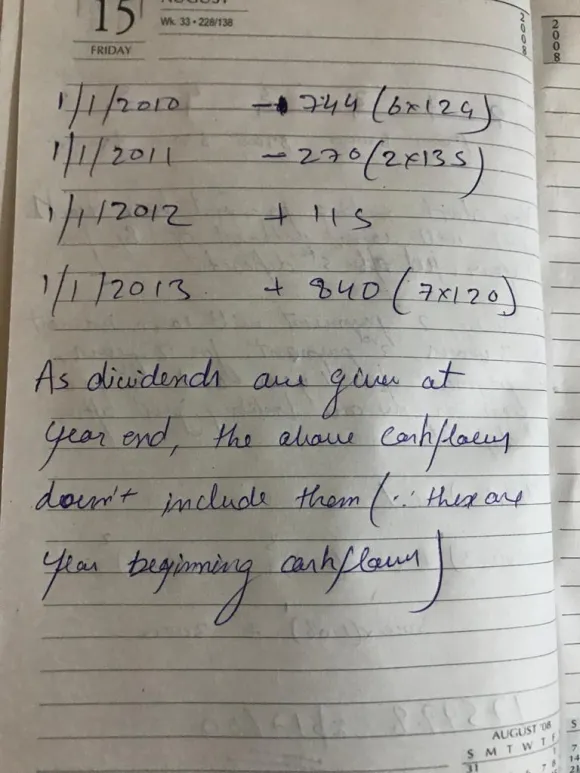 AUGUST
15
Wk. 33 • 228/138
FRIDAY
2008
2008
1/1/2010 - 744 (6x124)
1/1/2011 - 270 (2x135)
1/1/2012 + 115
1/1/2013 + 840 (7x120)
As dividends are given at
year end, the above cashflows
doesn't include them (∵ these are
year beginning cashflows)
AUGUST '08
S M T W T F
31